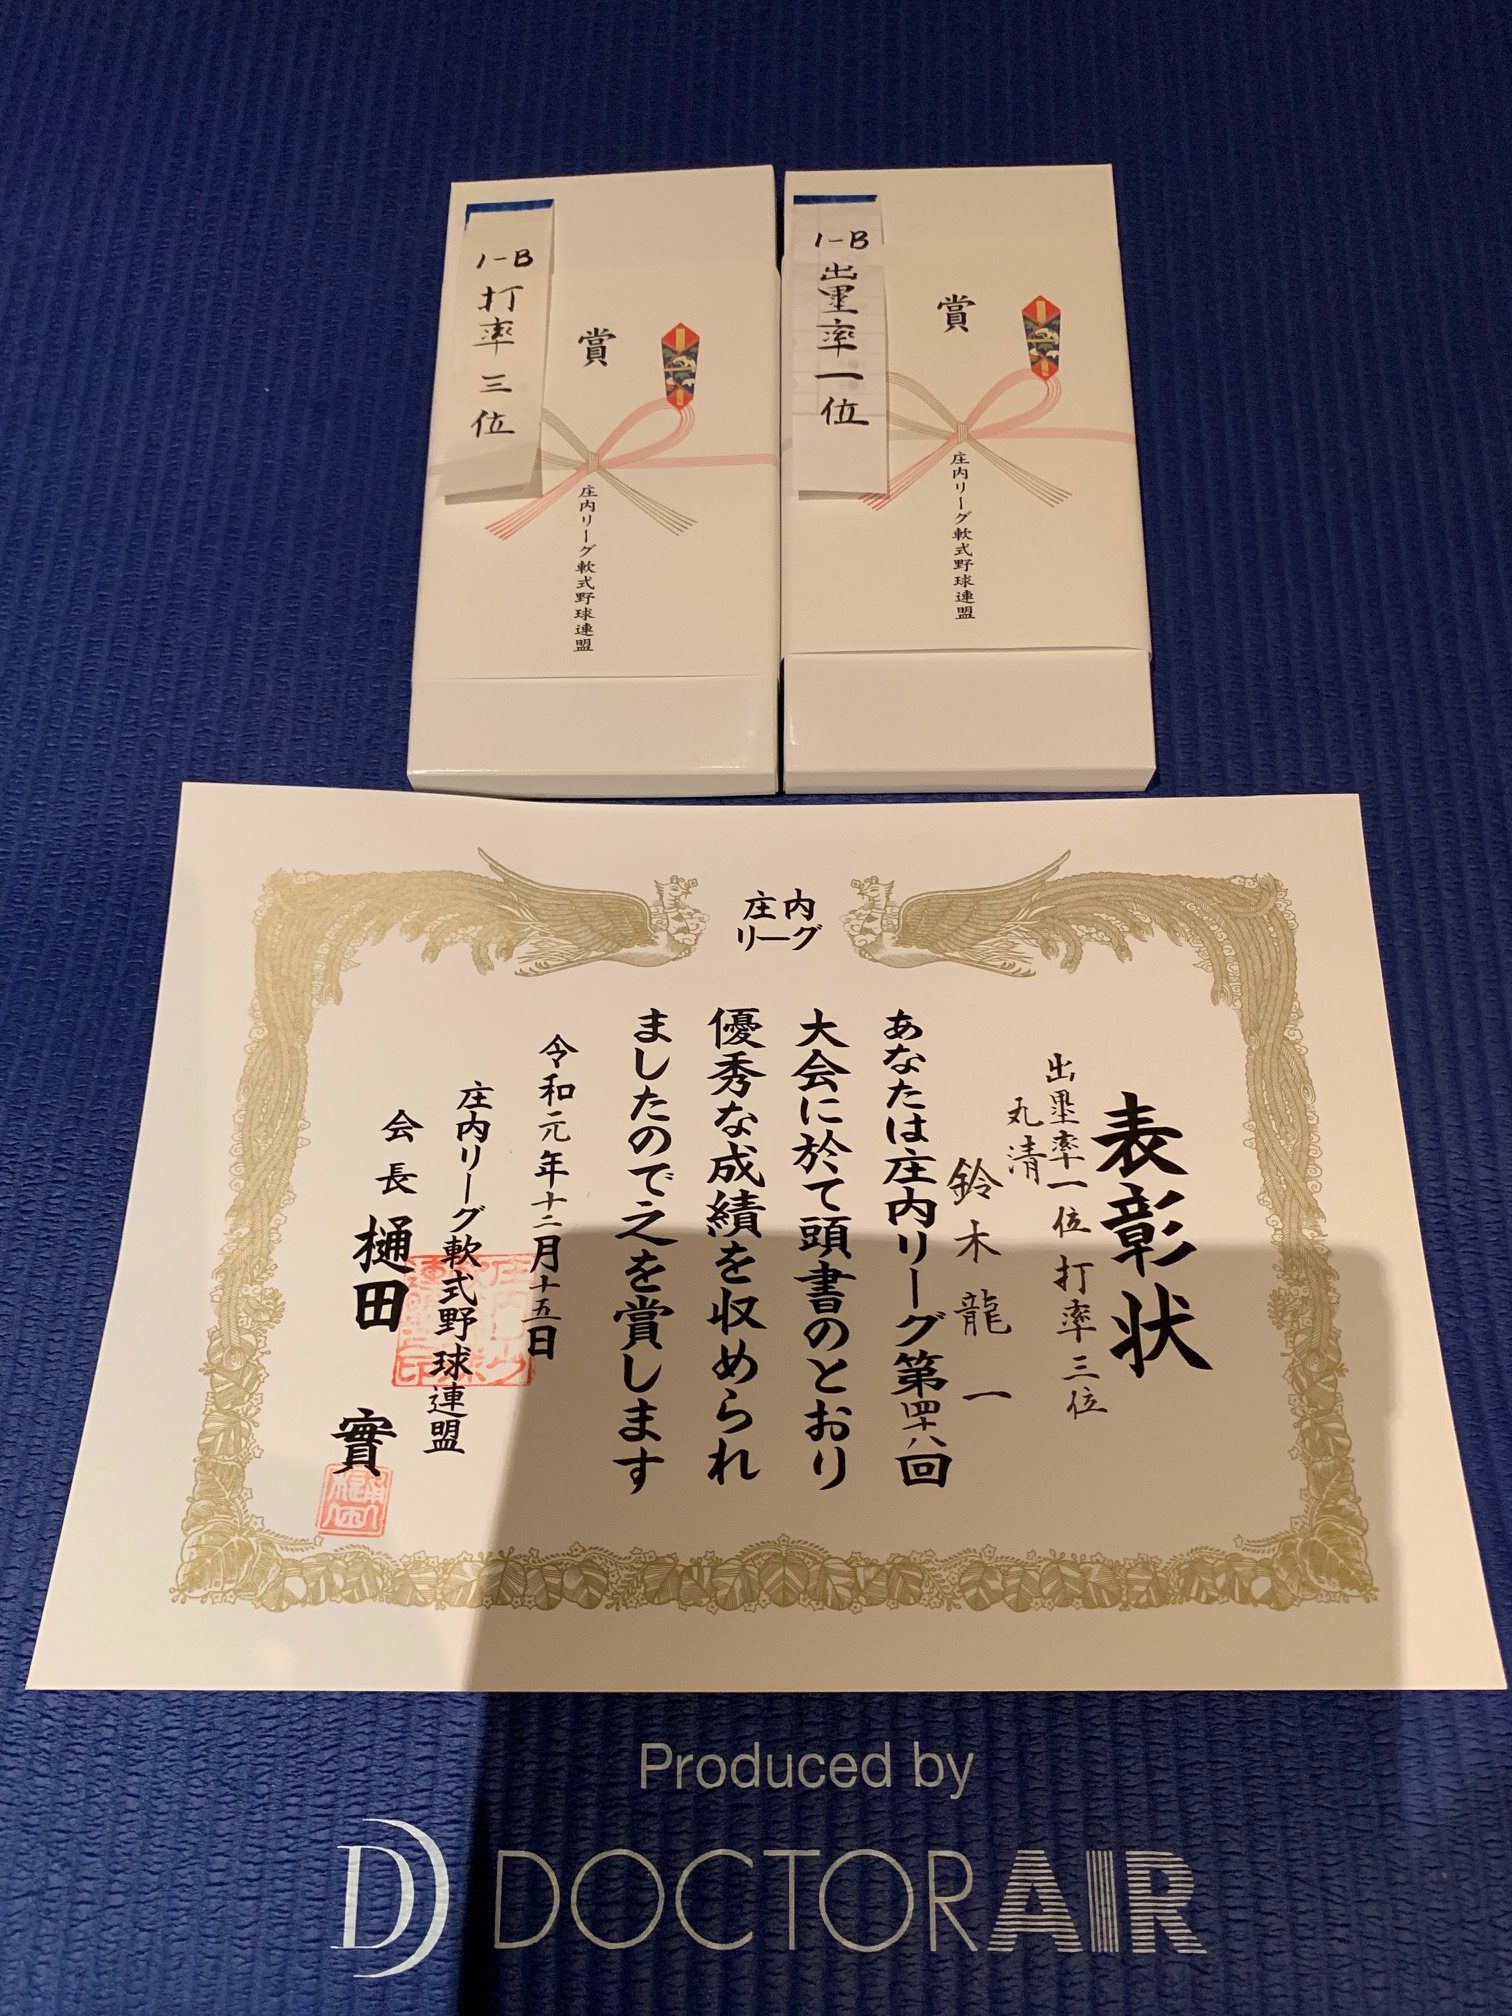 1-B
打率三位
賞
庄内リーグ軟式野球連盟
1-B
出塁率一位
賞
庄内リーグ軟式野球連盟
庄内
リーグ
表彰状
出塁率一位 打率三位
丸清
鈴木龍一
あなたは庄内リーグ第四十八回
大会に於て頭書のとおり
優秀な成績を収められ
ましたので之を賞します
令和元年十二月十五日
庄内リーグ軟式野球連盟
会長 樋田 實
Produced by
DOCTORAIR